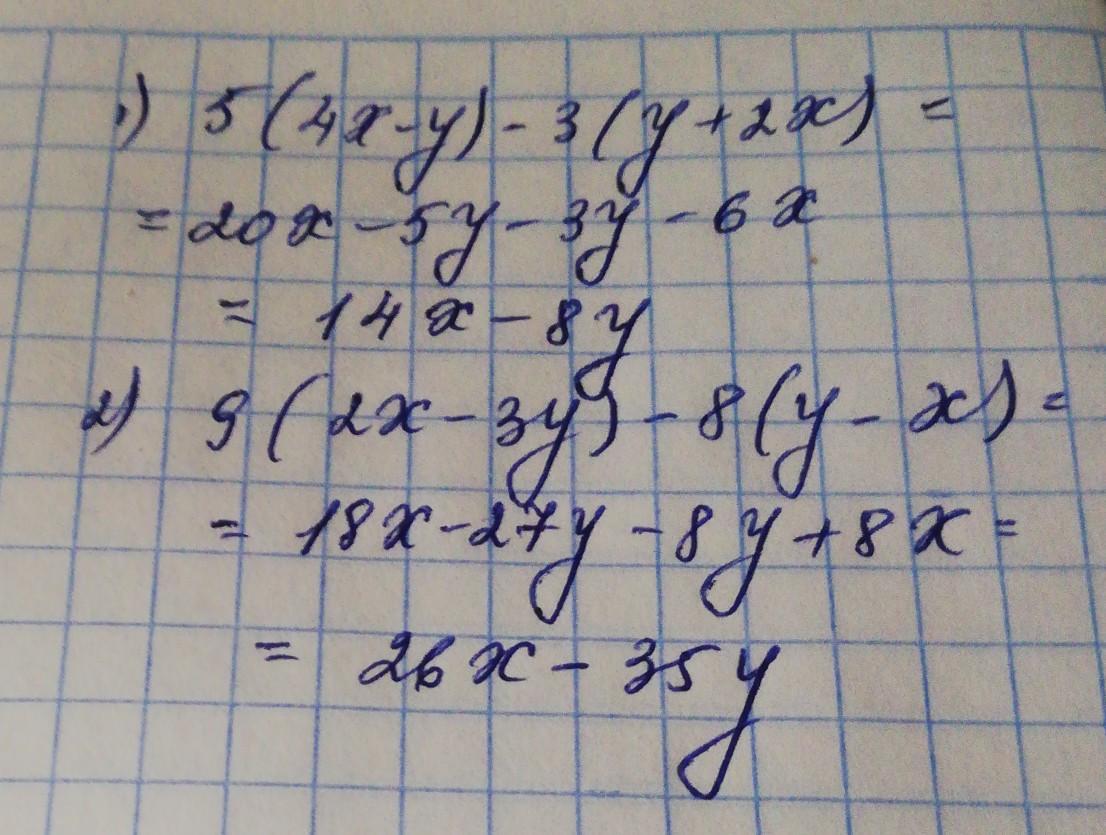 1) 5(4x-y)-3(y+2x) =
= 20x-5y-3y-6x
= 14x-8y
2) 9(2x-3y)-8(y-x) =
= 18x-27y-8y+8x =
= 26x-35y